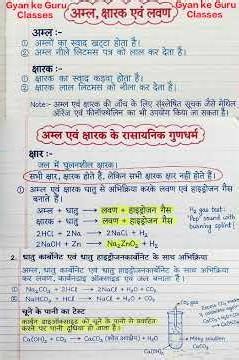 Gyan ke Guru Classes
Gyan ke Guru Classes
अम्ल, क्षारक एवं लवण
अम्ल :-
① अम्लों का स्वाद खट्टा होता है।
② अम्ल नीले लिटमस पत्र को लाल कर देता है।
क्षारक :-
① क्षारक का स्वाद कड़वा होता है।
② क्षारक लाल लिटमस को नीला कर देता है।
Note:- अम्ल एवं क्षारक की जाँच के लिए संश्लेषित सूचक जैसे मेथिल
ऑरेंज एवं फीनॉल्फथेलिन का भी उपयोग किया जा सकता है।
अम्ल एवं क्षारक के रासायनिक गुणधर्म
क्षार :-
जल में घुलनशील क्षारक।
सभी क्षार, क्षारक होते हैं, लेकिन सभी क्षारक क्षार नहीं होते हैं।
① अम्ल एवं क्षारक धातु से अभिक्रिया करके लवण एवं हाइड्रोजन गैस
बनाते हैं।
अम्ल + धातु → लवण + हाइड्रोजन गैस
क्षारक + धातु → लवण + हाइड्रोजन गैस
2HCl + 2Na → 2NaCl + H₂
2NaOH + Zn → Na₂ZnO₂ + H₂
H₂ gas test:
"Pop" sound with
burning splint
2. धातु कार्बोनेट एवं धातु हाइड्रोजनकार्बोनेट के साथ अभिक्रिया
अम्ल, धातु कार्बोनेट एवं धातु हाइड्रोजनकार्बोनेट के साथ अभिक्रिया
कर लवण, कार्बनडाई ऑक्साइड एवं जल बनाता है।
① Na₂CO₃ + 2HCl → 2NaCl + H₂O + CO₂
② NaHCO₃ + HCl → NaCl + H₂O + CO₂
चूने के पानी का टेस्ट
कार्बन डाइऑक्साइड को चूने के पानी से प्रवाहित
करने पर पानी दूधिया हो जाता है।
Ca(OH)₂ + CO₂ → CaCO₃ (श्वेत अवक्षेप) + H₂O
CO₂ gas
Milky solution
CaCO₃